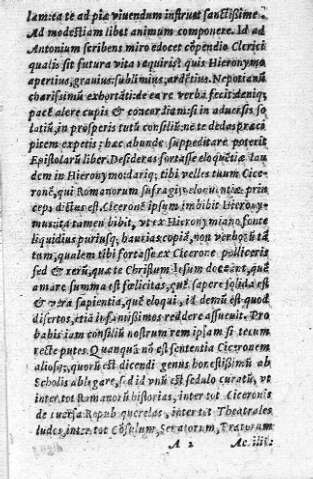 lam: ea te ad piæ viuendum instruet sanctissime.
Ad modestiam libet animum componere. Id ad
Antonium scribens miro edocet cōpendio Clerici
qualis sit futura vita requiris? quis Hieronymo
apertius, grauius: sublimius, ardētius. Nepotianū
charissimū exhortāti: de ea re verba fecit: deniq;
pacē alere cupis & concordiam: si in aduersis so
latiū, in prosperis tutū consiliū: ne te dedas præci
pitem expetis; hæc abunde suppeditare poterit
Epistolarū liber. Desideras fortasse eloquētiæ lau
dem in Hieronymo: dariq; tibi velles tuum Cice
ronē, qui Romanorum suffragijs eloquentiæ prin
ceps dictus est. Ciceronē ipsum imbibit Hierony-
mus: ita tamen bibit, vt ex Hieronymiano fonte
liquidius puriusq; haurias copiā, non verborū tā
tum, qualem tibi fortasse ex Cicerone polliceris
sed & rerū, quæ te Christum Iesum doceāt, quē
amare summa est fœlicitas, quē sapere solida est
& vera sapientia, quē eloqui, id demū est quod
disertos, etiā infantissimos reddere assueuit. Pro
babis iam consiliū nostrum rem ipsam si tecum
recte putes. Quanquā nō est sententia Ciceronem
aliosq; quorū est dicendi genus honestissimū ab
Scholis ablegare, sed id vnū est sedulo curatū, vt
inter tot Romanorū historias, inter tot Ciceronis
de euersa Repub. querelas, inter tot Theatrales
ludos, inter tot Cōsulum, Senatorum, Prætorum
A 2 Ac.iiii: